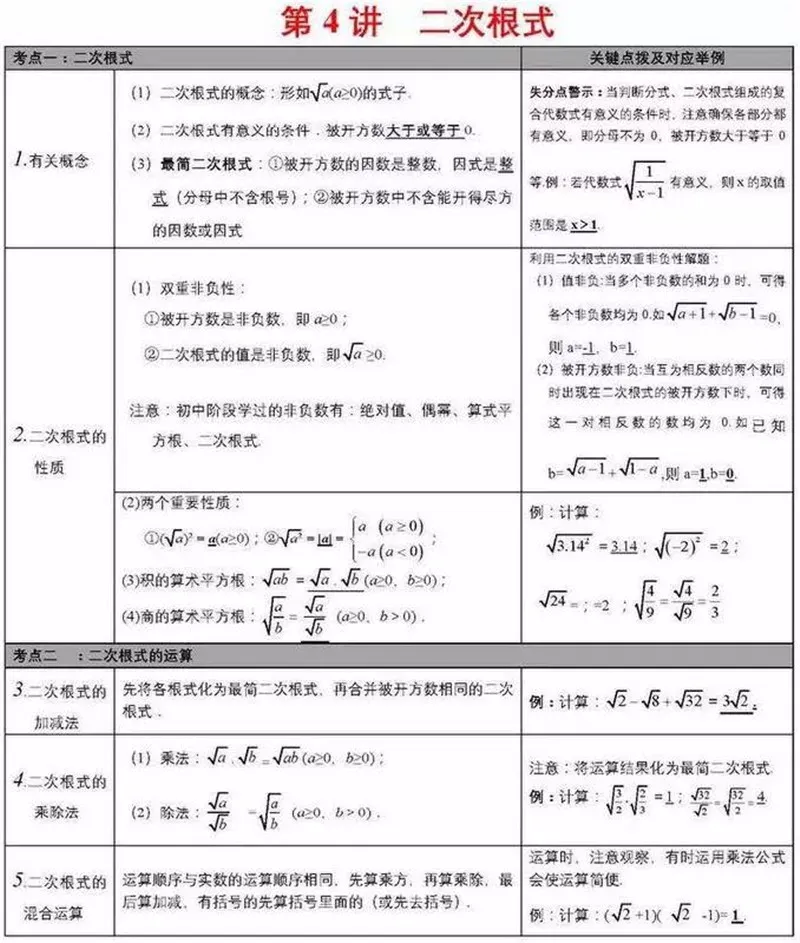 第 4 讲 二次根式
考点一：二次根式
关键点拨及对应举例
1.有关概念
(1) 二次根式的概念：形如√a(a≥0)的式子.
(2) 二次根式有意义的条件．被开方数大于或等于 0.
(3) 最简二次根式：①被开方数的因数是整数，因式是整
式（分母中不含根号）；②被开方数中不含能开得尽方
的因数或因式
失分点警示：当判断分式、二次根式组成的复
合代数式有意义的条件时，注意确保各部分都
有意义，即分母不为 0，被开方数大于等于 0
等.例：若代数式√(1/(x−1)) 有意义，则 x 的取值
范围是 x＞1.
2.二次根式的
性质
(1) 双重非负性：
①被开方数是非负数，即 a≥0；
②二次根式的值是非负数，即√a ≥0.
注意：初中阶段学过的非负数有：绝对值、偶幂、算式平
方根、二次根式.
利用二次根式的双重非负性解题：
(1) 值非负:当多个非负数的和为 0 时，可得
各个非负数均为 0.如√(a+1)+√(b−1)=0,
则 a=-1，b=1.
(2) 被开方数非负:当互为相反数的两个数同
时出现在二次根式的被开方数下时，可得
这一对相反数的数均为 0.如已知
b=√(a−1)+√(1−a),则 a=1,b=0.
(2)两个重要性质：
①(√a)²=a(a≥0)；②√a²=|a|={a (a≥0) −a (a<0)；
(3)积的算术平方根：√ab = √a . √b (a≥0，b≥0)；
(4)商的算术平方根：√(a/b) = √a/√b (a≥0，b＞0)．
例：计算：
√3.14² = 3.14；√(−2)² = 2；
√24 =；=2 ；√(4/9) = √4/√9 = 2/3
考点二 ：二次根式的运算
3.二次根式的
加减法
先将各根式化为最简二次根式，再合并被开方数相同的二次
根式．
例：计算：√2−√8+√32 = 3√2．
4.二次根式的
乘除法
(1) 乘法：√a . √b = √ab (a≥0，b≥0)；
(2) 除法：√a/√b =√(a/b) (a≥0，b＞0)．
注意：将运算结果化为最简二次根式.
例：计算：√(3/2).√(2/3) =1；√32/√2=√(32/2)=4.
5.二次根式的
混合运算
运算顺序与实数的运算顺序相同，先算乘方，再算乘除，最
后算加减，有括号的先算括号里面的（或先去括号）.
运算时，注意观察，有时运用乘法公式
会使运算简便.
例：计算：(√2+1)( √2 -1)= 1 .